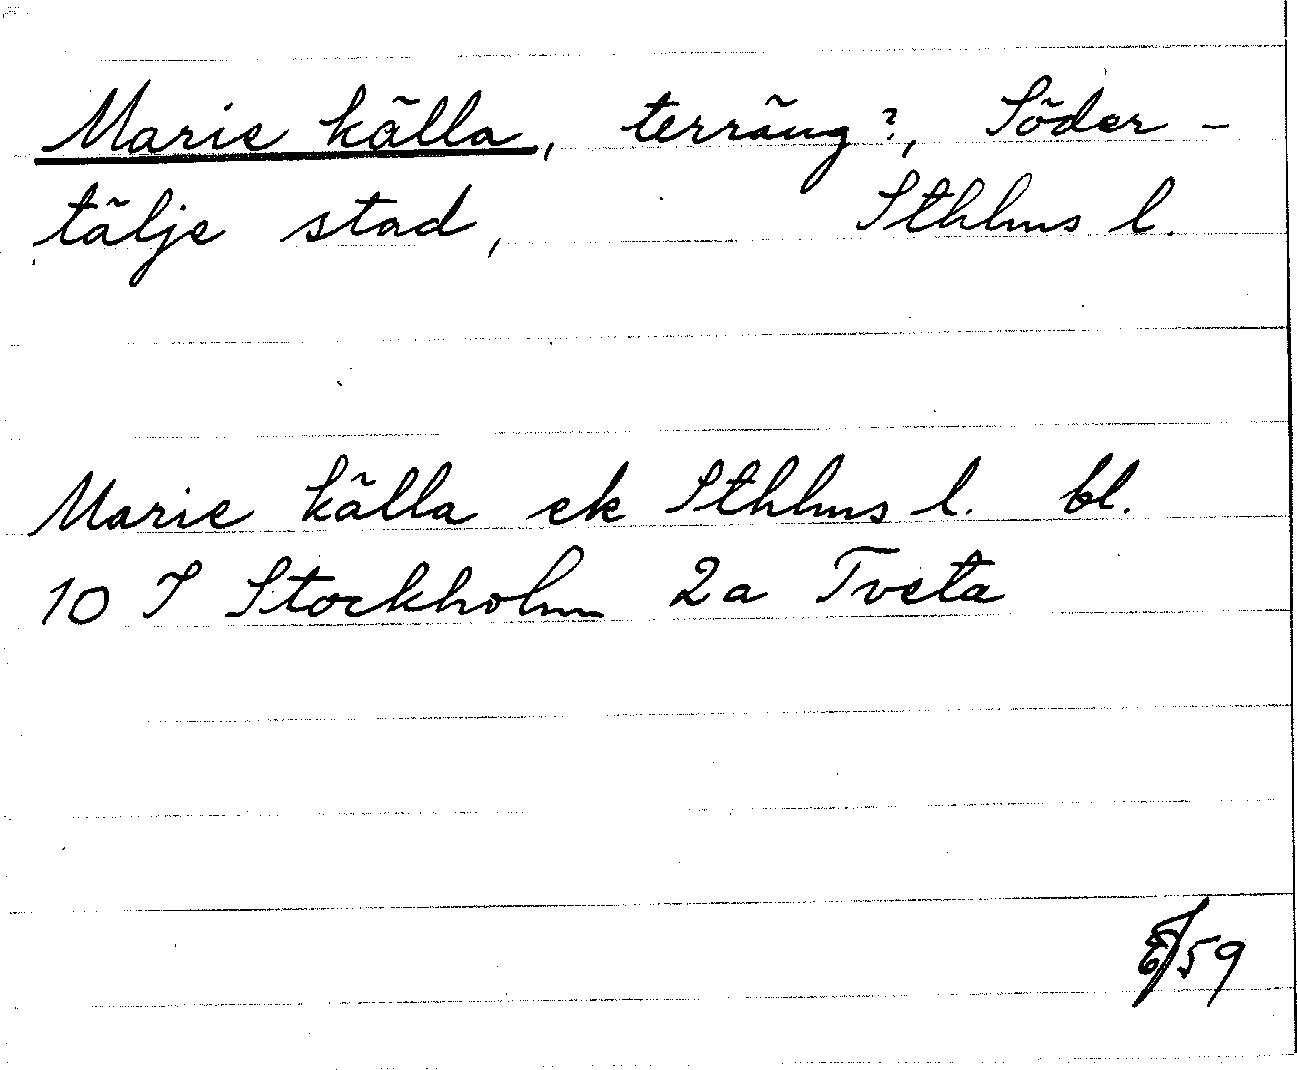 Marie källa, terräng?, Söder-
tälje stad, Sthlms l.
Marie källa ek Sthlms l. bl.
10 I Stockholm 2a Tveta
/59